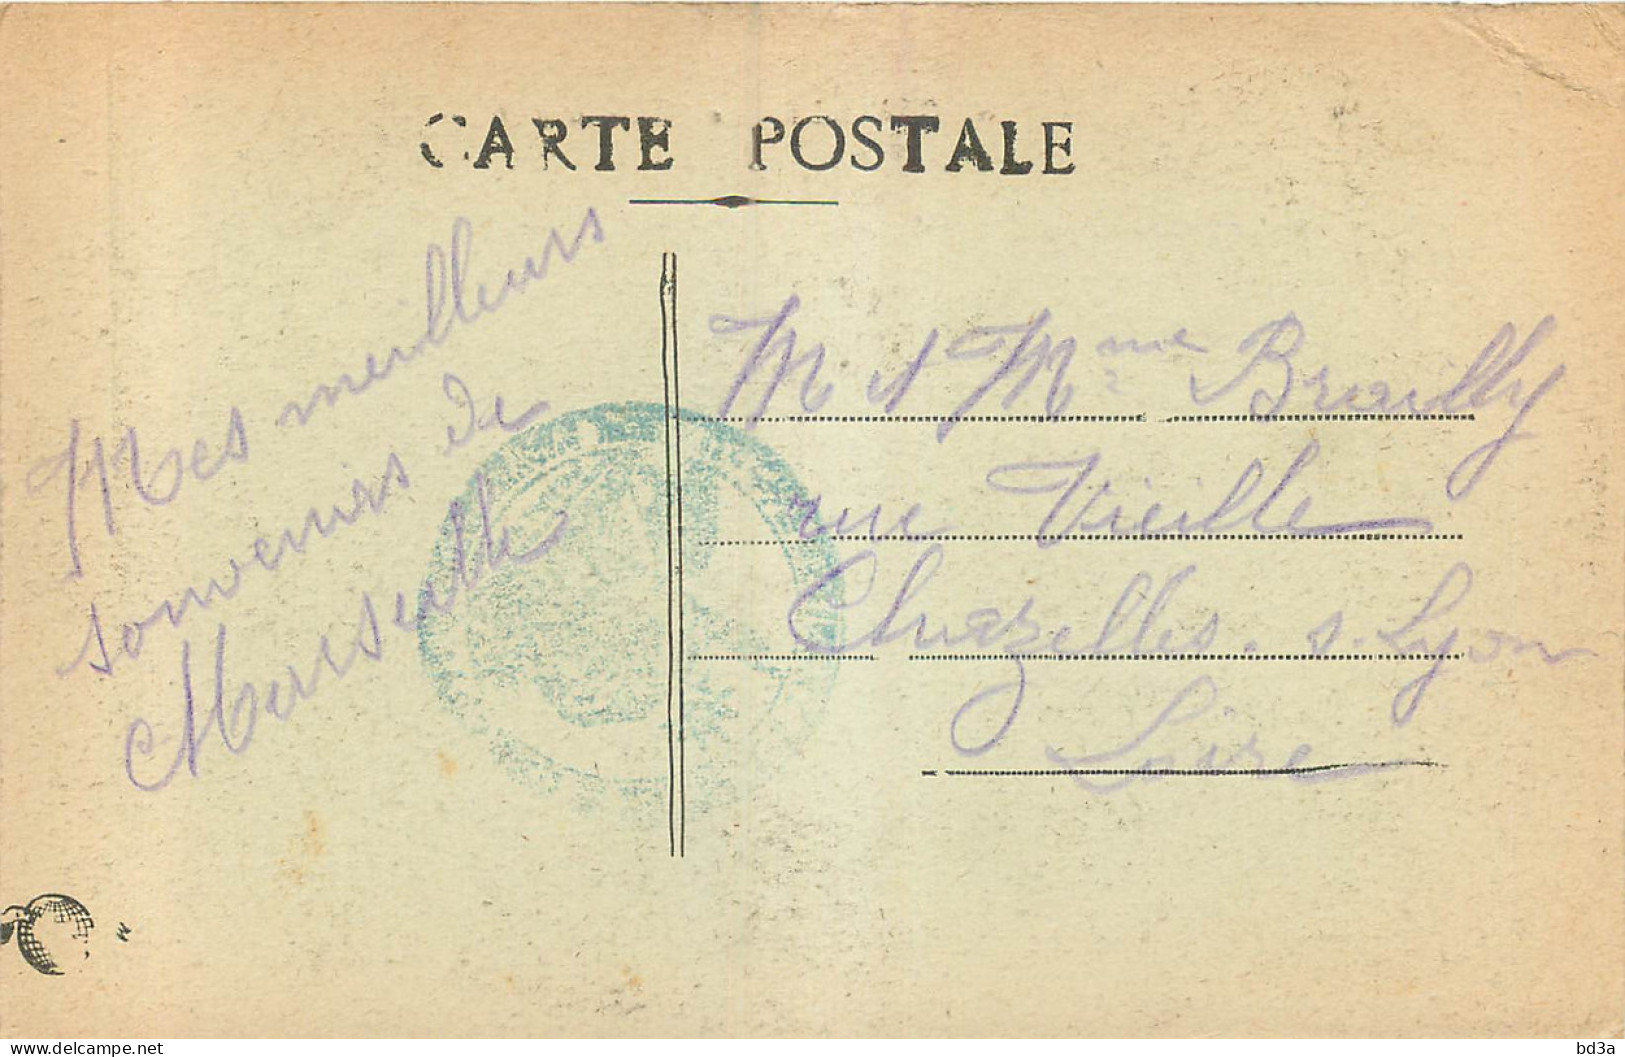 CARTE POSTALE
Mes meilleurs
souvenirs de
Marseille
M et Mme Brailly
rue Vieille
Chazelles. s. Lyon
Loire
delcampe.net
bd3a